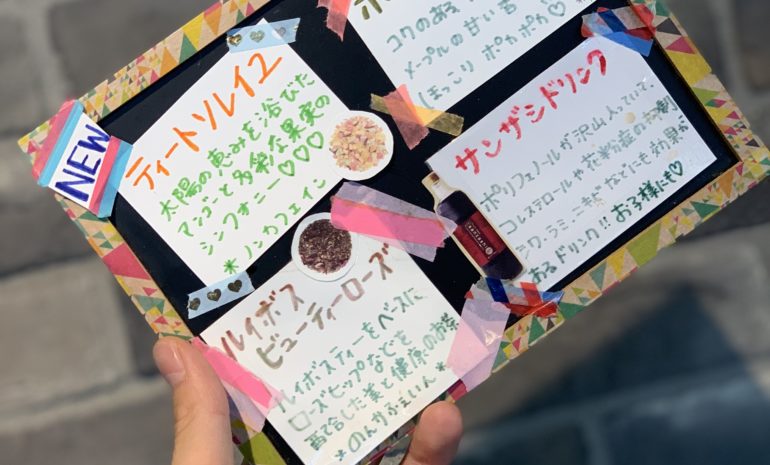 コクのある
メープルの甘い香
ほっこり ポカポカ♡
NEW
ティートソレイユ
太陽の恵みを浴びた
マンゴーと多彩な果実の
シンフォニー♡♡♡
*ノンカフェイン
サンザシドリンク
ポリフェノールが沢山入っていて、
コレステロールや花粉症の
シワ・シミ・ニキビなどにも
あるドリンク!! お子様にも♡
ルイボス
ビューティーローズ
ルイボスティーをベースに
ローズヒップなどを
配合した美と健康のお茶
*のんかふぇいん*